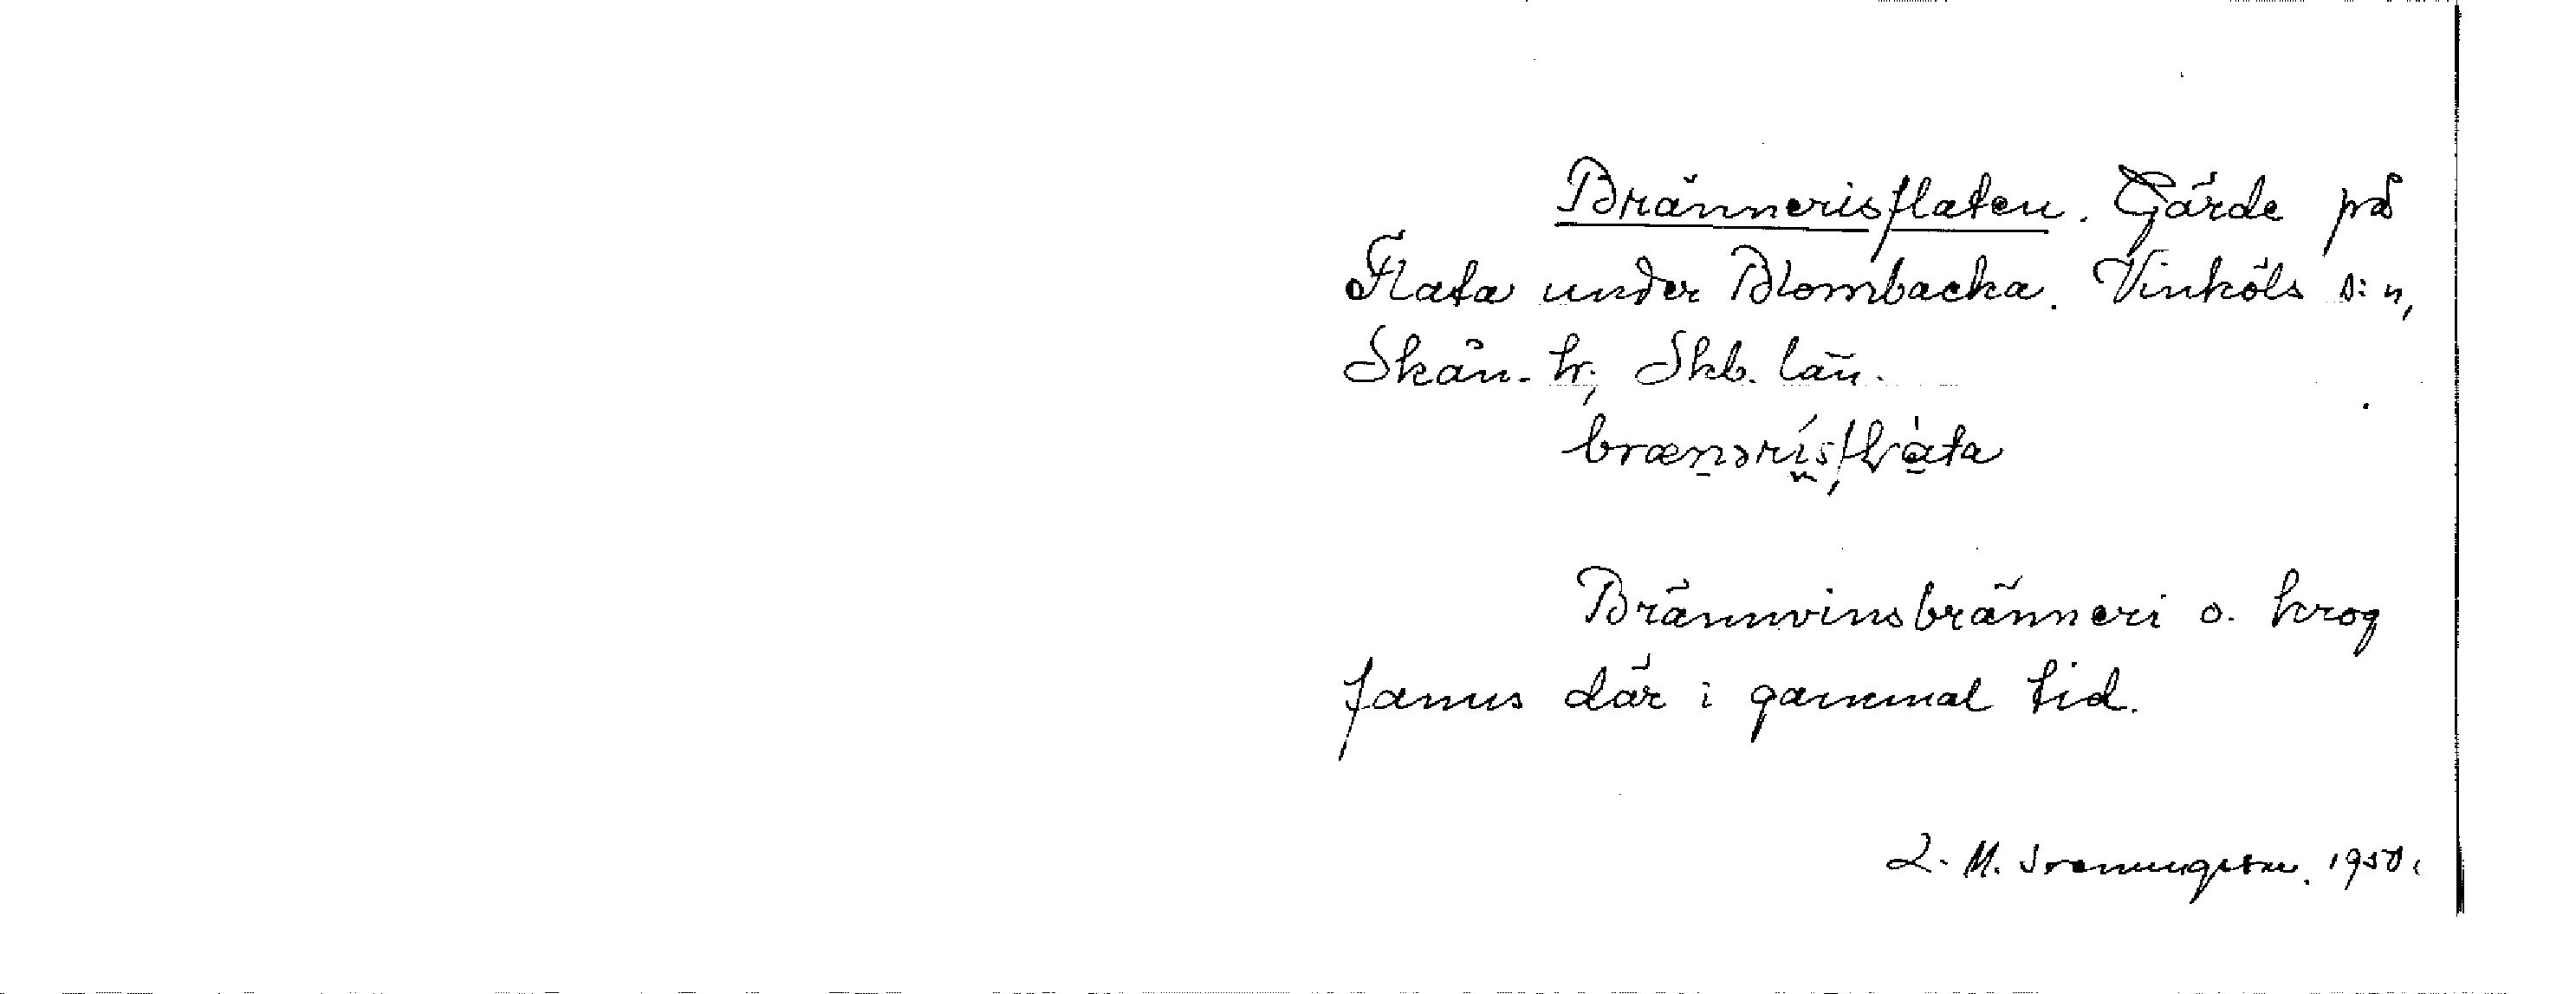 Brännerisflaten. Gärde på
Flata under Blombacka. Vinköls s:n,
Skån. hr, Skb. län.
brænərísflàta
Brännvinsbränneri o. krog
fanns där i gammal tid.
L. M. Svenungsson. 1950.